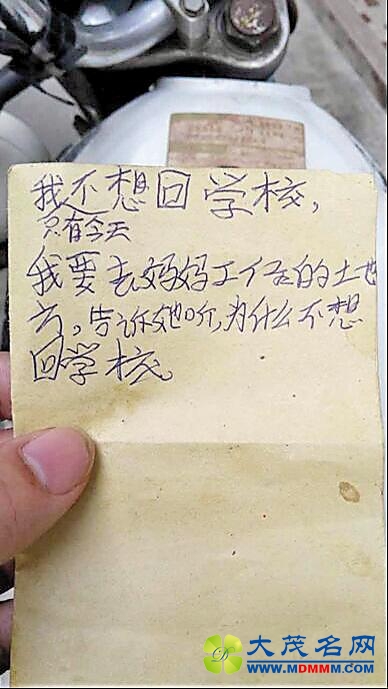 我不想回学核，
只有今天
我要去妈妈工作的土也
方，告诉她叭，为什么不想
回学核
大茂名网
WWW.MDMMM.COM